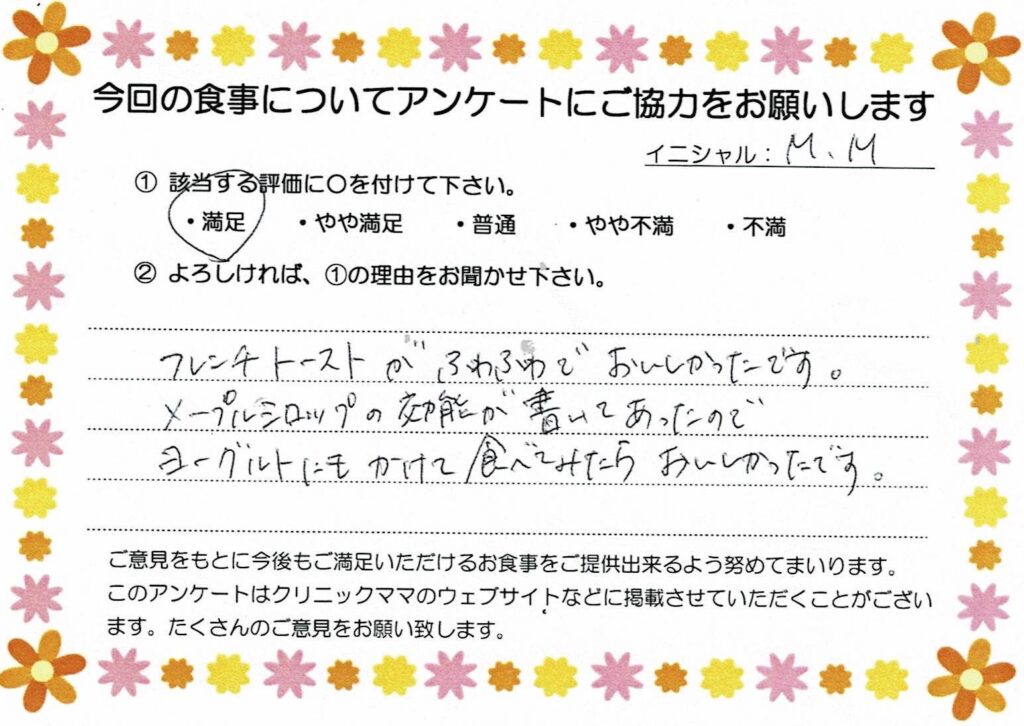 今回の食事についてアンケートにご協力をお願いします
イニシャル：M、M
① 該当する評価に〇を付けて下さい。
・満足 ・やや満足 ・普通 ・やや不満 ・不満
② よろしければ、①の理由をお聞かせ下さい。
フレンチトーストが ふわふわで おいしかったです。
メープルシロップの効能が書いてあったので
ヨーグルトにもかけて食べてみたらおいしかったです。
ご意見をもとに今後もご満足いただけるお食事をご提供出来るよう努めてまいります。
このアンケートはクリニックママのウェブサイトなどに掲載させていただくことがござい
ます。たくさんのご意見をお願い致します。